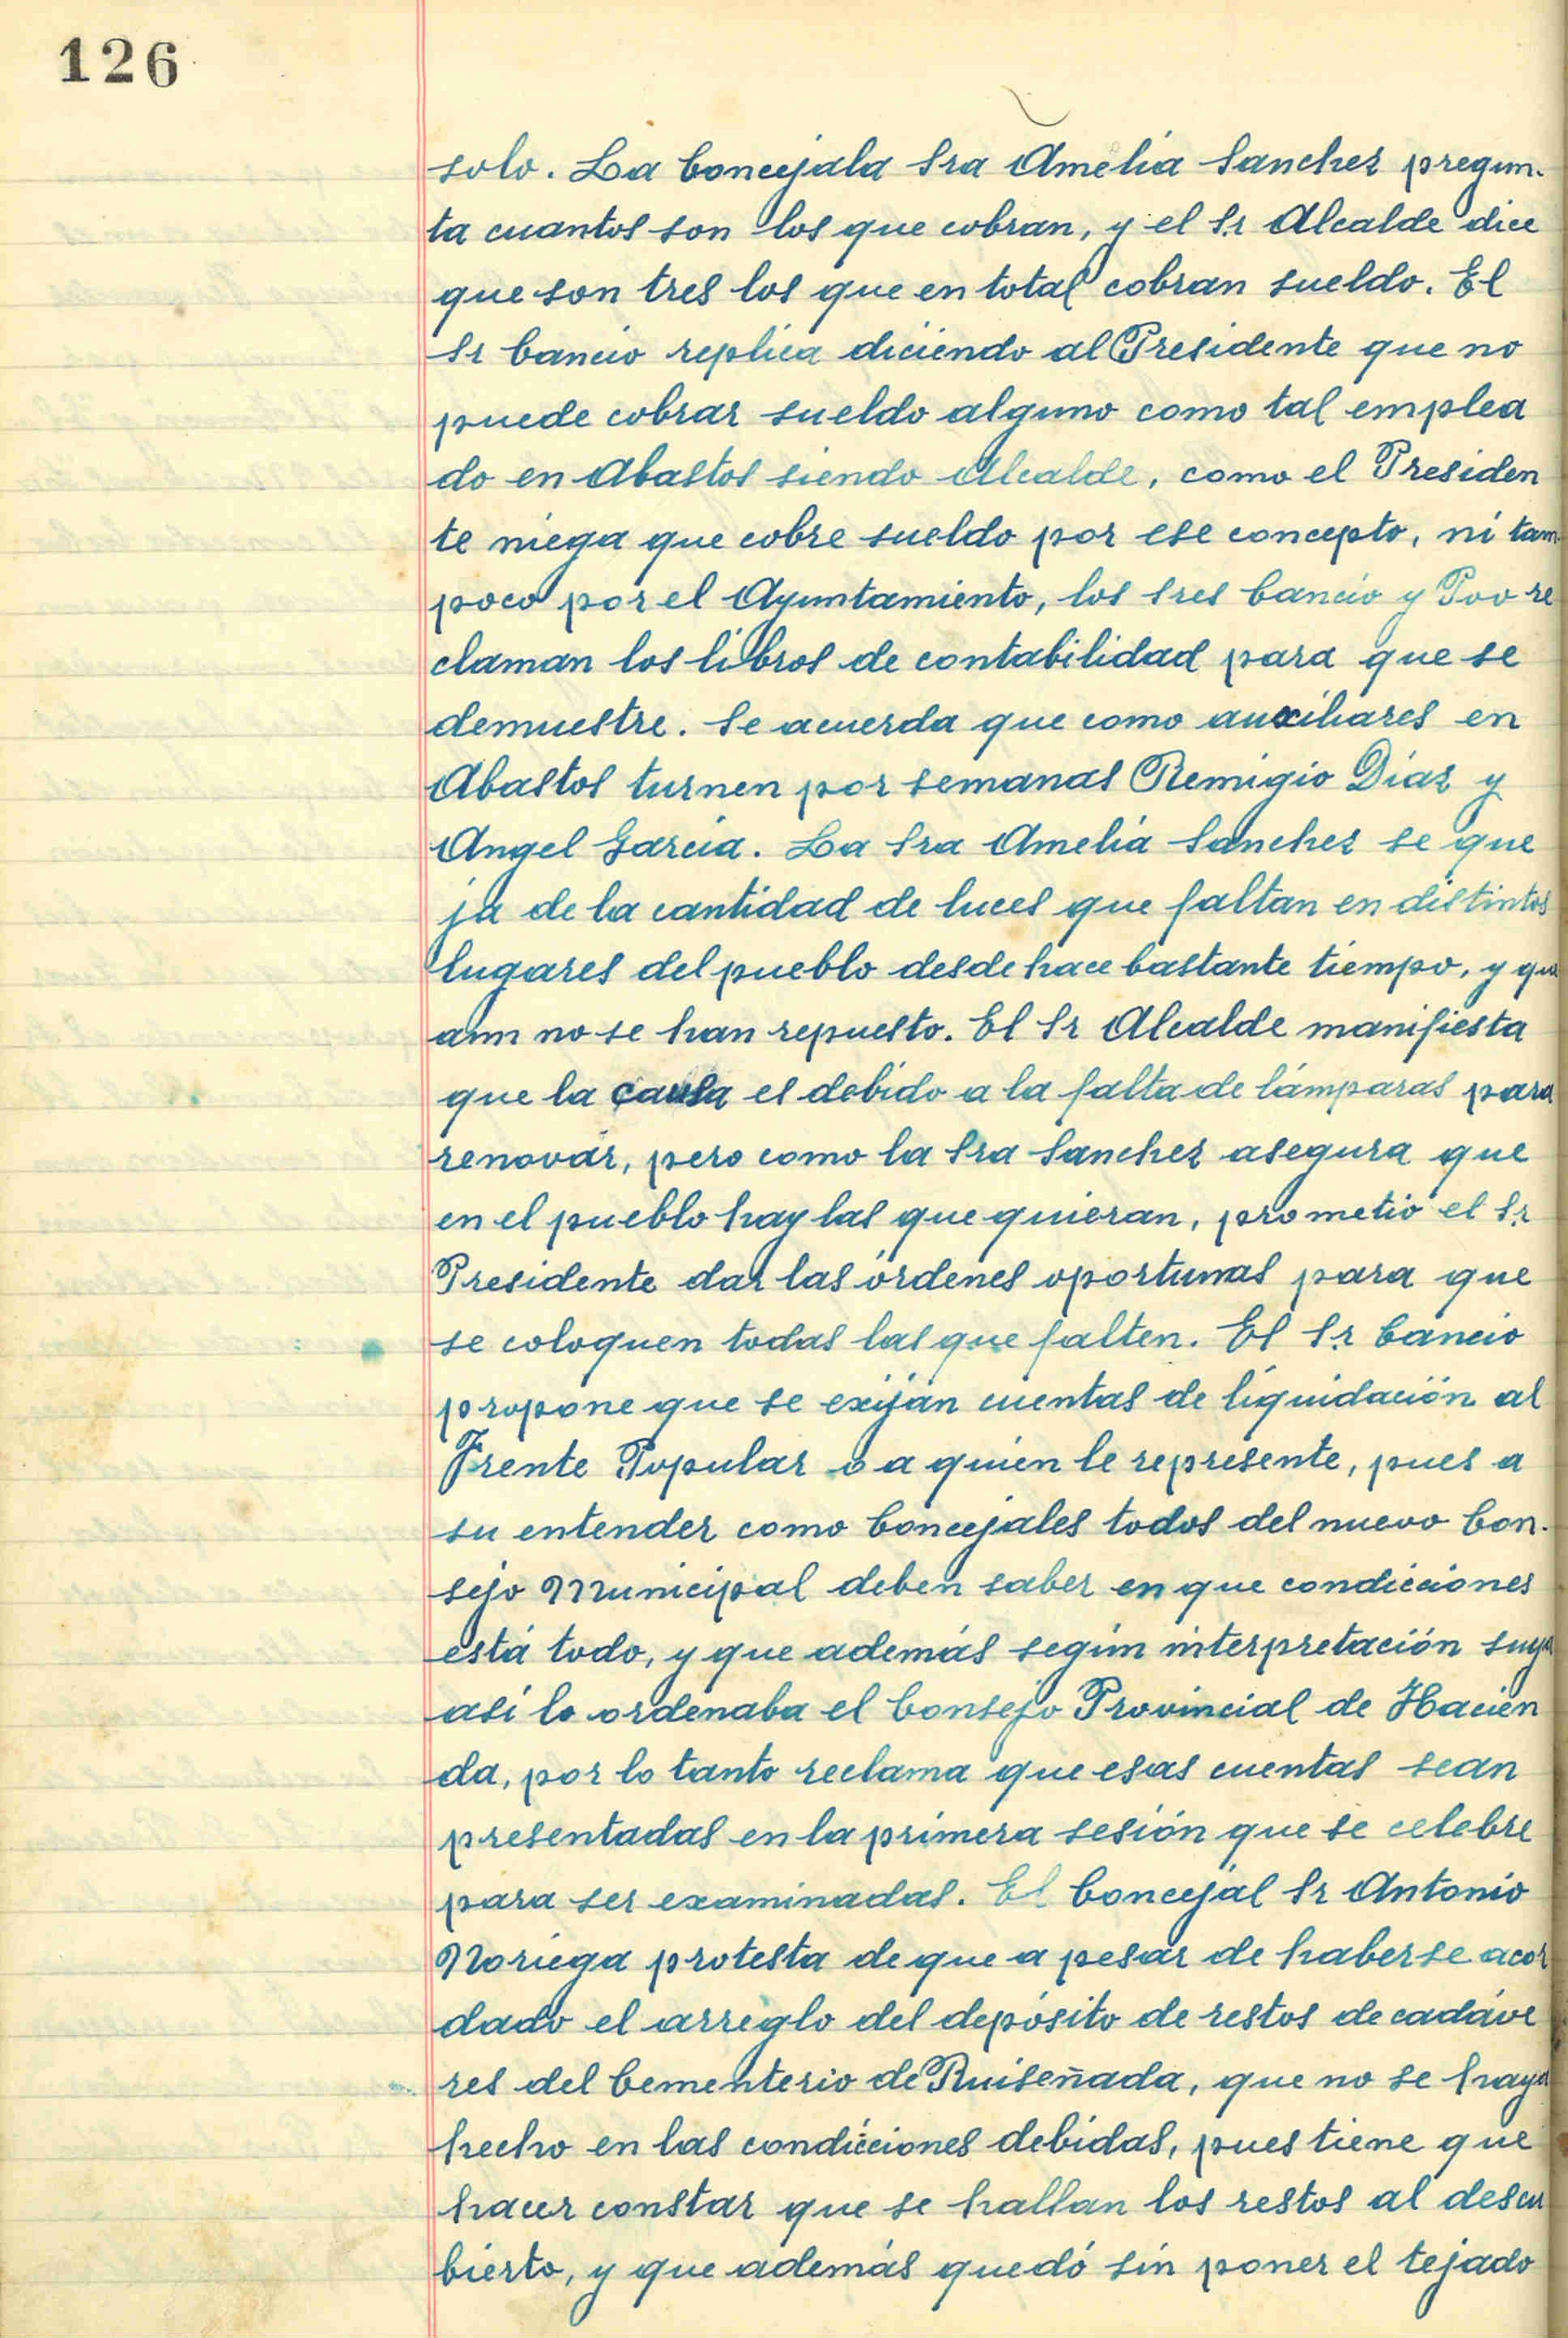 126
solo. La Concejala Sra Amelia Sanchez pregun-
ta cuantos son los que cobran, y el Sr Alcalde dice
que son tres los que en total cobran sueldo. El
Sr Cancio replica diciendo al Presidente que no
puede cobrar sueldo alguno como tal emplea
do en Abastos siendo Alcalde, como el Presiden
te niega que cobre sueldo por ese concepto, ni tam-
poco por el Ayuntamiento, los Sres Cancio y Poo re
claman los libros de contabilidad para que se
demuestre. Se acuerda que como auxiliares en
Abastos turnen por semanas Remigio Díaz y
Angel García. La Sra Amelia Sanchez se que
ja de la cantidad de luces que faltan en distintos
lugares del pueblo desde hace bastante tiempo, y que
aun no se han repuesto. El Sr Alcalde manifiesta
que la causa es debido a la falta de lámparas para
renovar, pero como la Sra Sanchez asegura que
en el pueblo hay las que quieran, prometió el Sr
Presidente dar las órdenes oportunas para que
se coloquen todas las que falten. El Sr Cancio
propone que se exijan cuentas de liquidación al
Frente Popular o a quien le represente, pues a
su entender como Concejales todos del nuevo Con-
sejo Municipal deben saber en que condicciones
está todo, y que además según interpretación suya
así lo ordenaba el Consejo Provincial de Hacien
da, por lo tanto reclama que esas cuentas sean
presentadas en la primera sesión que se celebre
para ser examinadas. El Concejal Sr Antonio
Noriega protesta de que a pesar de haberse acor
dado el arreglo del depósito de restos de cadáve
res del Cementerio de Ruiseñada, que no se haya
hecho en las condicciones debidas, pues tiene que
hacer constar que se hallan los restos al descu
bierto, y que además quedó sin poner el tejado